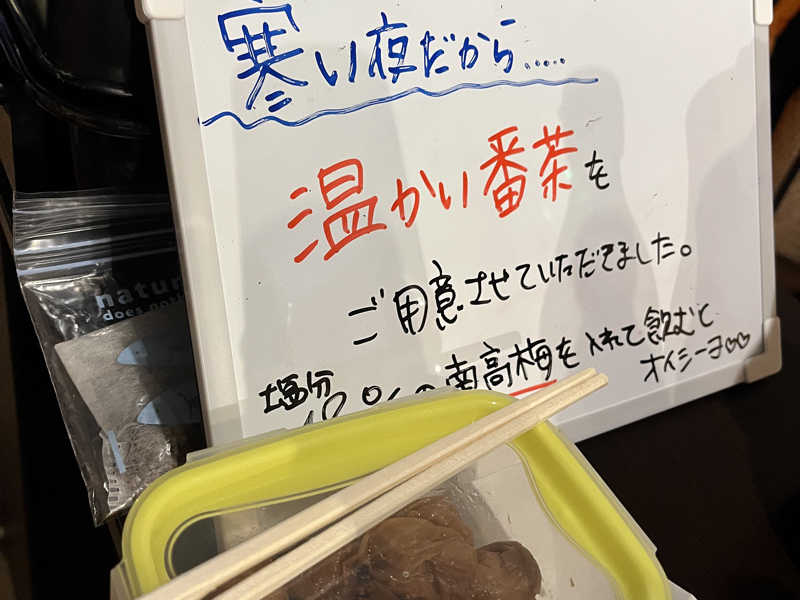 寒い夜だから.....
温かい番茶を
ご用意させていただきました。
塩分
18%の南高梅を入れて飲むと
オイシーヨ♡♡
natur
does not